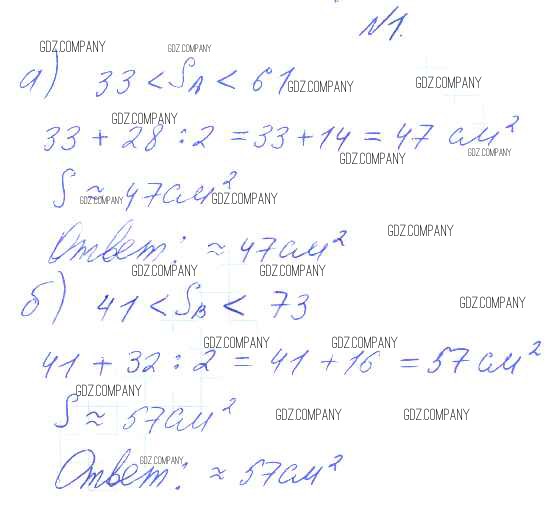 N1.
GDZ.COMPANY GDZ.COMPANY
а) 33 < S_A < 61 GDZ.COMPANY GDZ.COMPANY
GDZ.COMPANY
33 + 28 : 2 = 33 + 14 = 47 см²
GDZ.COMPANY GDZ.COMPANY
S ≈ 47 см²
GDZ.COMPANY GDZ.COMPANY
GDZ.COMPANY
Ответ: ≈ 47 см²
GDZ.COMPANY GDZ.COMPANY
б) 41 < S_B < 73 GDZ.COMPANY
GDZ.COMPANY GDZ.COMPANY
41 + 32 : 2 = 41 + 16 = 57 см²
GDZ.COMPANY
S ≈ 57 см² GDZ.COMPANY GDZ.COMPANY
GDZ.COMPANY
Ответ: ≈ 57 см²